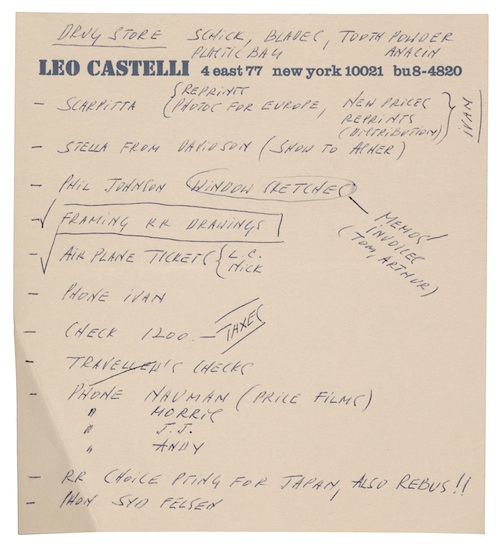 DRUG STORE SCHICK, BLADES, TOOTH POWDER
PLASTIC BAG ANACIN
LEO CASTELLI 4 east 77 new york 10021 bu8-4820
- SCARPITTA { REPRINTS
PHOTOS FOR EUROPE, NEW PRICES
REPRINTS
(DISTRIBUTION) } IVAN
- STELLA FROM DAVIDSON (SHOW TO ACHER)
- PHIL JOHNSON WINDOW SKETCHES
MEMOS/
INVOICES
(TOM, ARTHUR)
- FRAMING RR DRAWINGS
- AIR PLANE TICKETS { L.C.
NICK
- PHONE IVAN
- CHECK 1200 - TAXES
- TRAVELLER'S CHECKS
- PHONE NAUMAN (PRICE FILMS)
" MORRIS
" J.J.
" ANDY
- RR CHOICE PTING FOR JAPAN, ALSO REBUS!!
- PHON SYD FELSEN